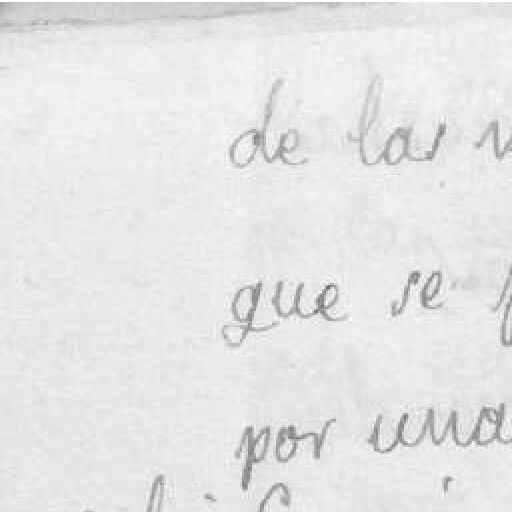 de las
que se
por una